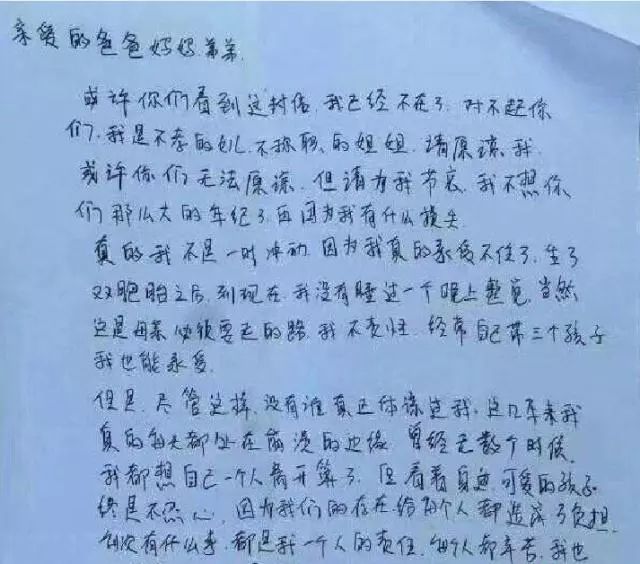 亲爱的爸爸妈妈弟弟
或许你们看到这封信,我已经不在了,对不起你
们,我是不孝的女儿,不称职的姐姐,请原谅我.
或许你们无法原谅,但请为我节哀,我不想你
们那么大的年纪了,再因为我有什么损失
真的我不是一时冲动,因为我真的承受不住了,生了
双胞胎之后,到现在,我没有睡过一个晚上整觉,当然
这是母亲必须要走的路,我不责怪,经常自己带三个孩子
我也能承受.
但是,尽管这样,没有谁真正体谅过我,这几年来我
真的每天都处在崩溃的边缘,曾经无数个时候,
我都想自己一个人离开算了,但看着身边可爱的孩子
终是不忍心,因为我们的存在给两个人都造成了负担,
每次有什么事,都是我一个人的责任,每个人都辛苦,我也